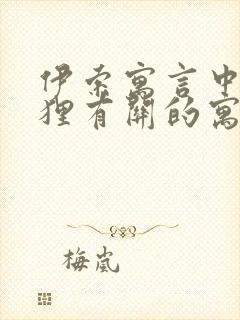 伊索寓言中
狸有关的寓
梅岚